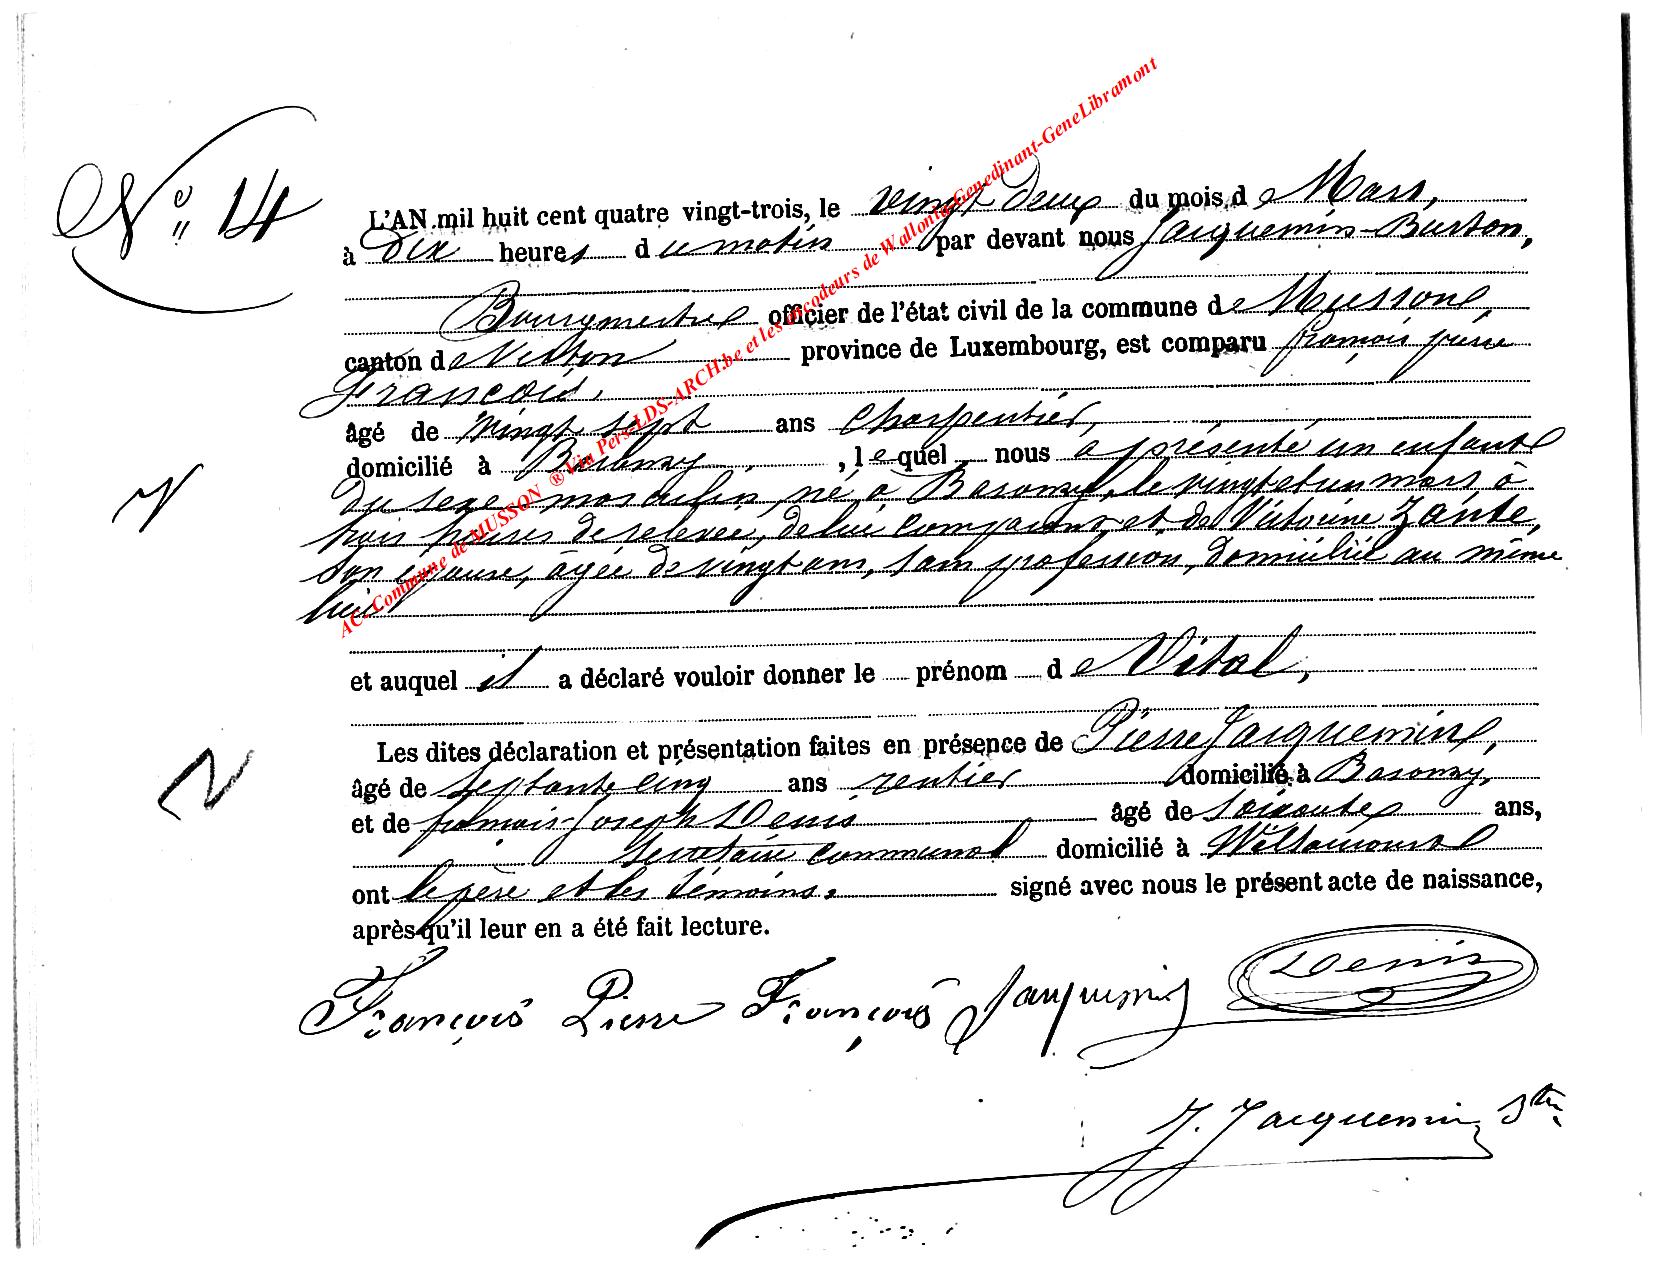 N° 14
L'AN mil huit cent quatre vingt-trois, le vingt deux du mois de Mars,
à Dix heures du matin par devant nous Jacquemin-Burton,
Bourgmestre officier de l'état civil de la commune de Musson,
canton de Virton province de Luxembourg, est comparu françois pierre
François,
âgé de vingt sept ans charpentier,
domicilié à Baranzy, lequel nous a présenté un enfant
du sexe masculin, né à Baranzy, le vingt et un mars, à
trois heures de relevée, de lui comparant et de Victorine Zante,
son épouse, âgée de vingt ans, sans profession, domiciliée au même
lieu
et auquel il a déclaré vouloir donner le prénom de Vital,
Les dites déclaration et présentation faites en présence de Pierre Jacquemin,
âgé de septante cinq ans rentier domicilié à Baranzy,
et de françois-Joseph Denis âgé de soixante ans,
secrétaire communal domicilié à Willancourt
ont le père et les témoins, signé avec nous le présent acte de naissance,
après qu'il leur en a été fait lecture.
François Pierre François Jacquemin Denis
J. Jacquemin
AC- Commune de MUSSON ® Via Pers-LDS-ARCH.be et les encodeurs de Wallonia-Genedinant-GeneLibramont